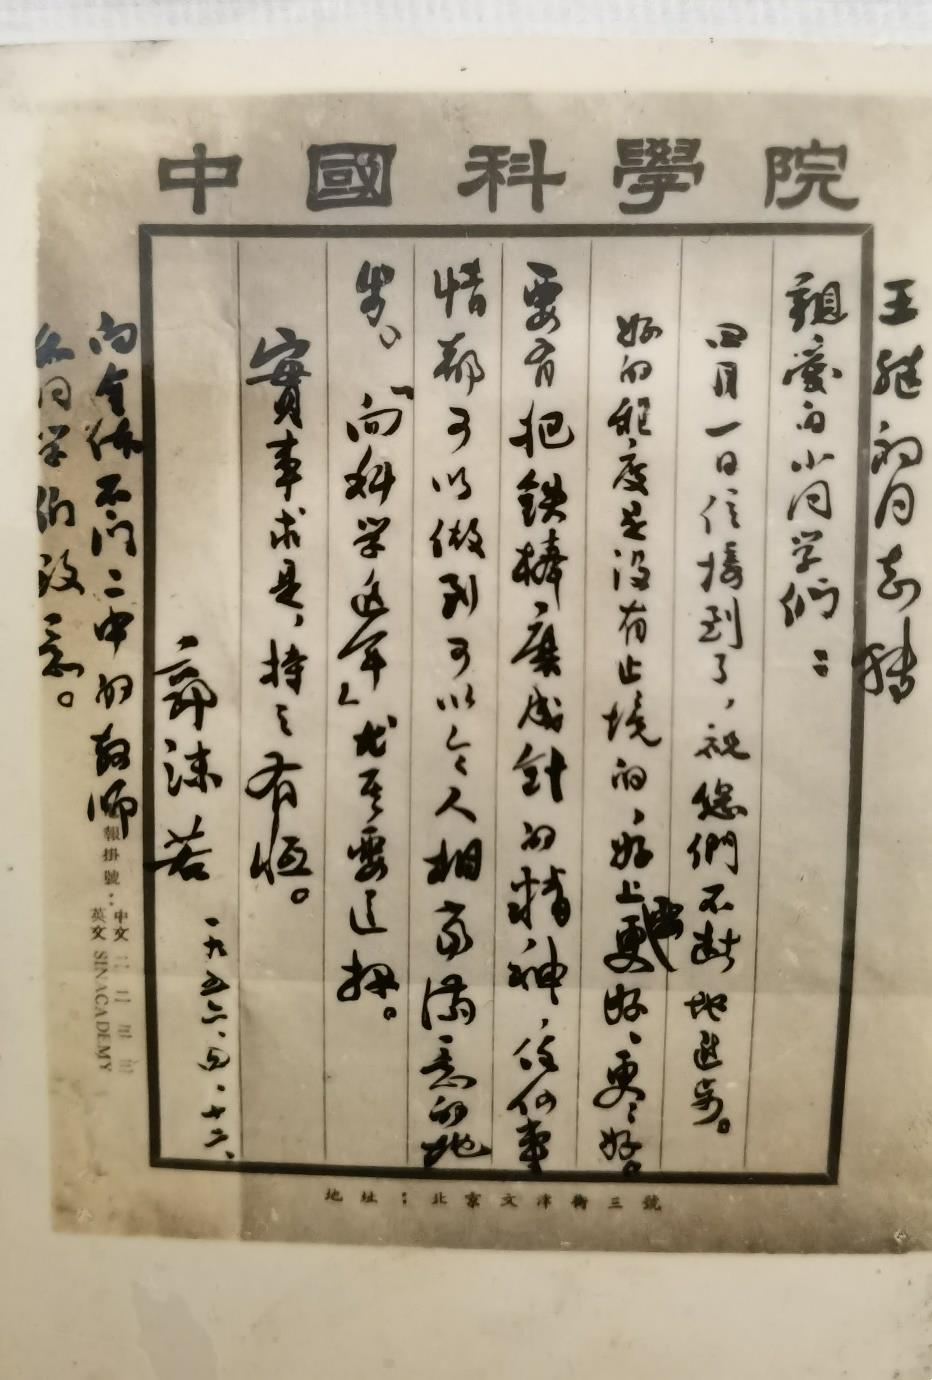 中國科學院
王繼初同志轉
親愛的小同学们：
四月一日信接到了，祝您們不断地進步。
好的程度是没有止境的，好上更好，更更好。
要有把鉄棒磨成針的精神，任何事
情都可以做到可以令人相當满意的地
步。「向科学进军」尤其要这样。
實事求是，持之有恆。
郭沫若
一九五六、四、十六、
向全体石门二中的教师
和同学们致意。
報掛號：中文 二二三三
英文 SINACADEMY
地址：北京文津街三號